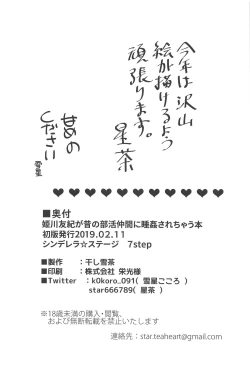 今年は沢山
絵が描けるよう
頑張ります。
星茶
せめの
しださい
雪星
■奥付
姫川友紀が昔の部活仲間に睡姦されちゃう本
初版発行2019.02.11
シンデレラ☆ステージ 7step
■製作 :干し雪茶
■印刷 :株式会社 栄光様
■Twitter :k0koro_091( 雪星こころ )
star666789( 星茶 )
※18歳未満の購入・閲覧、
および無断転載を禁止いたします
連絡先:star.teaheart@gmail.com